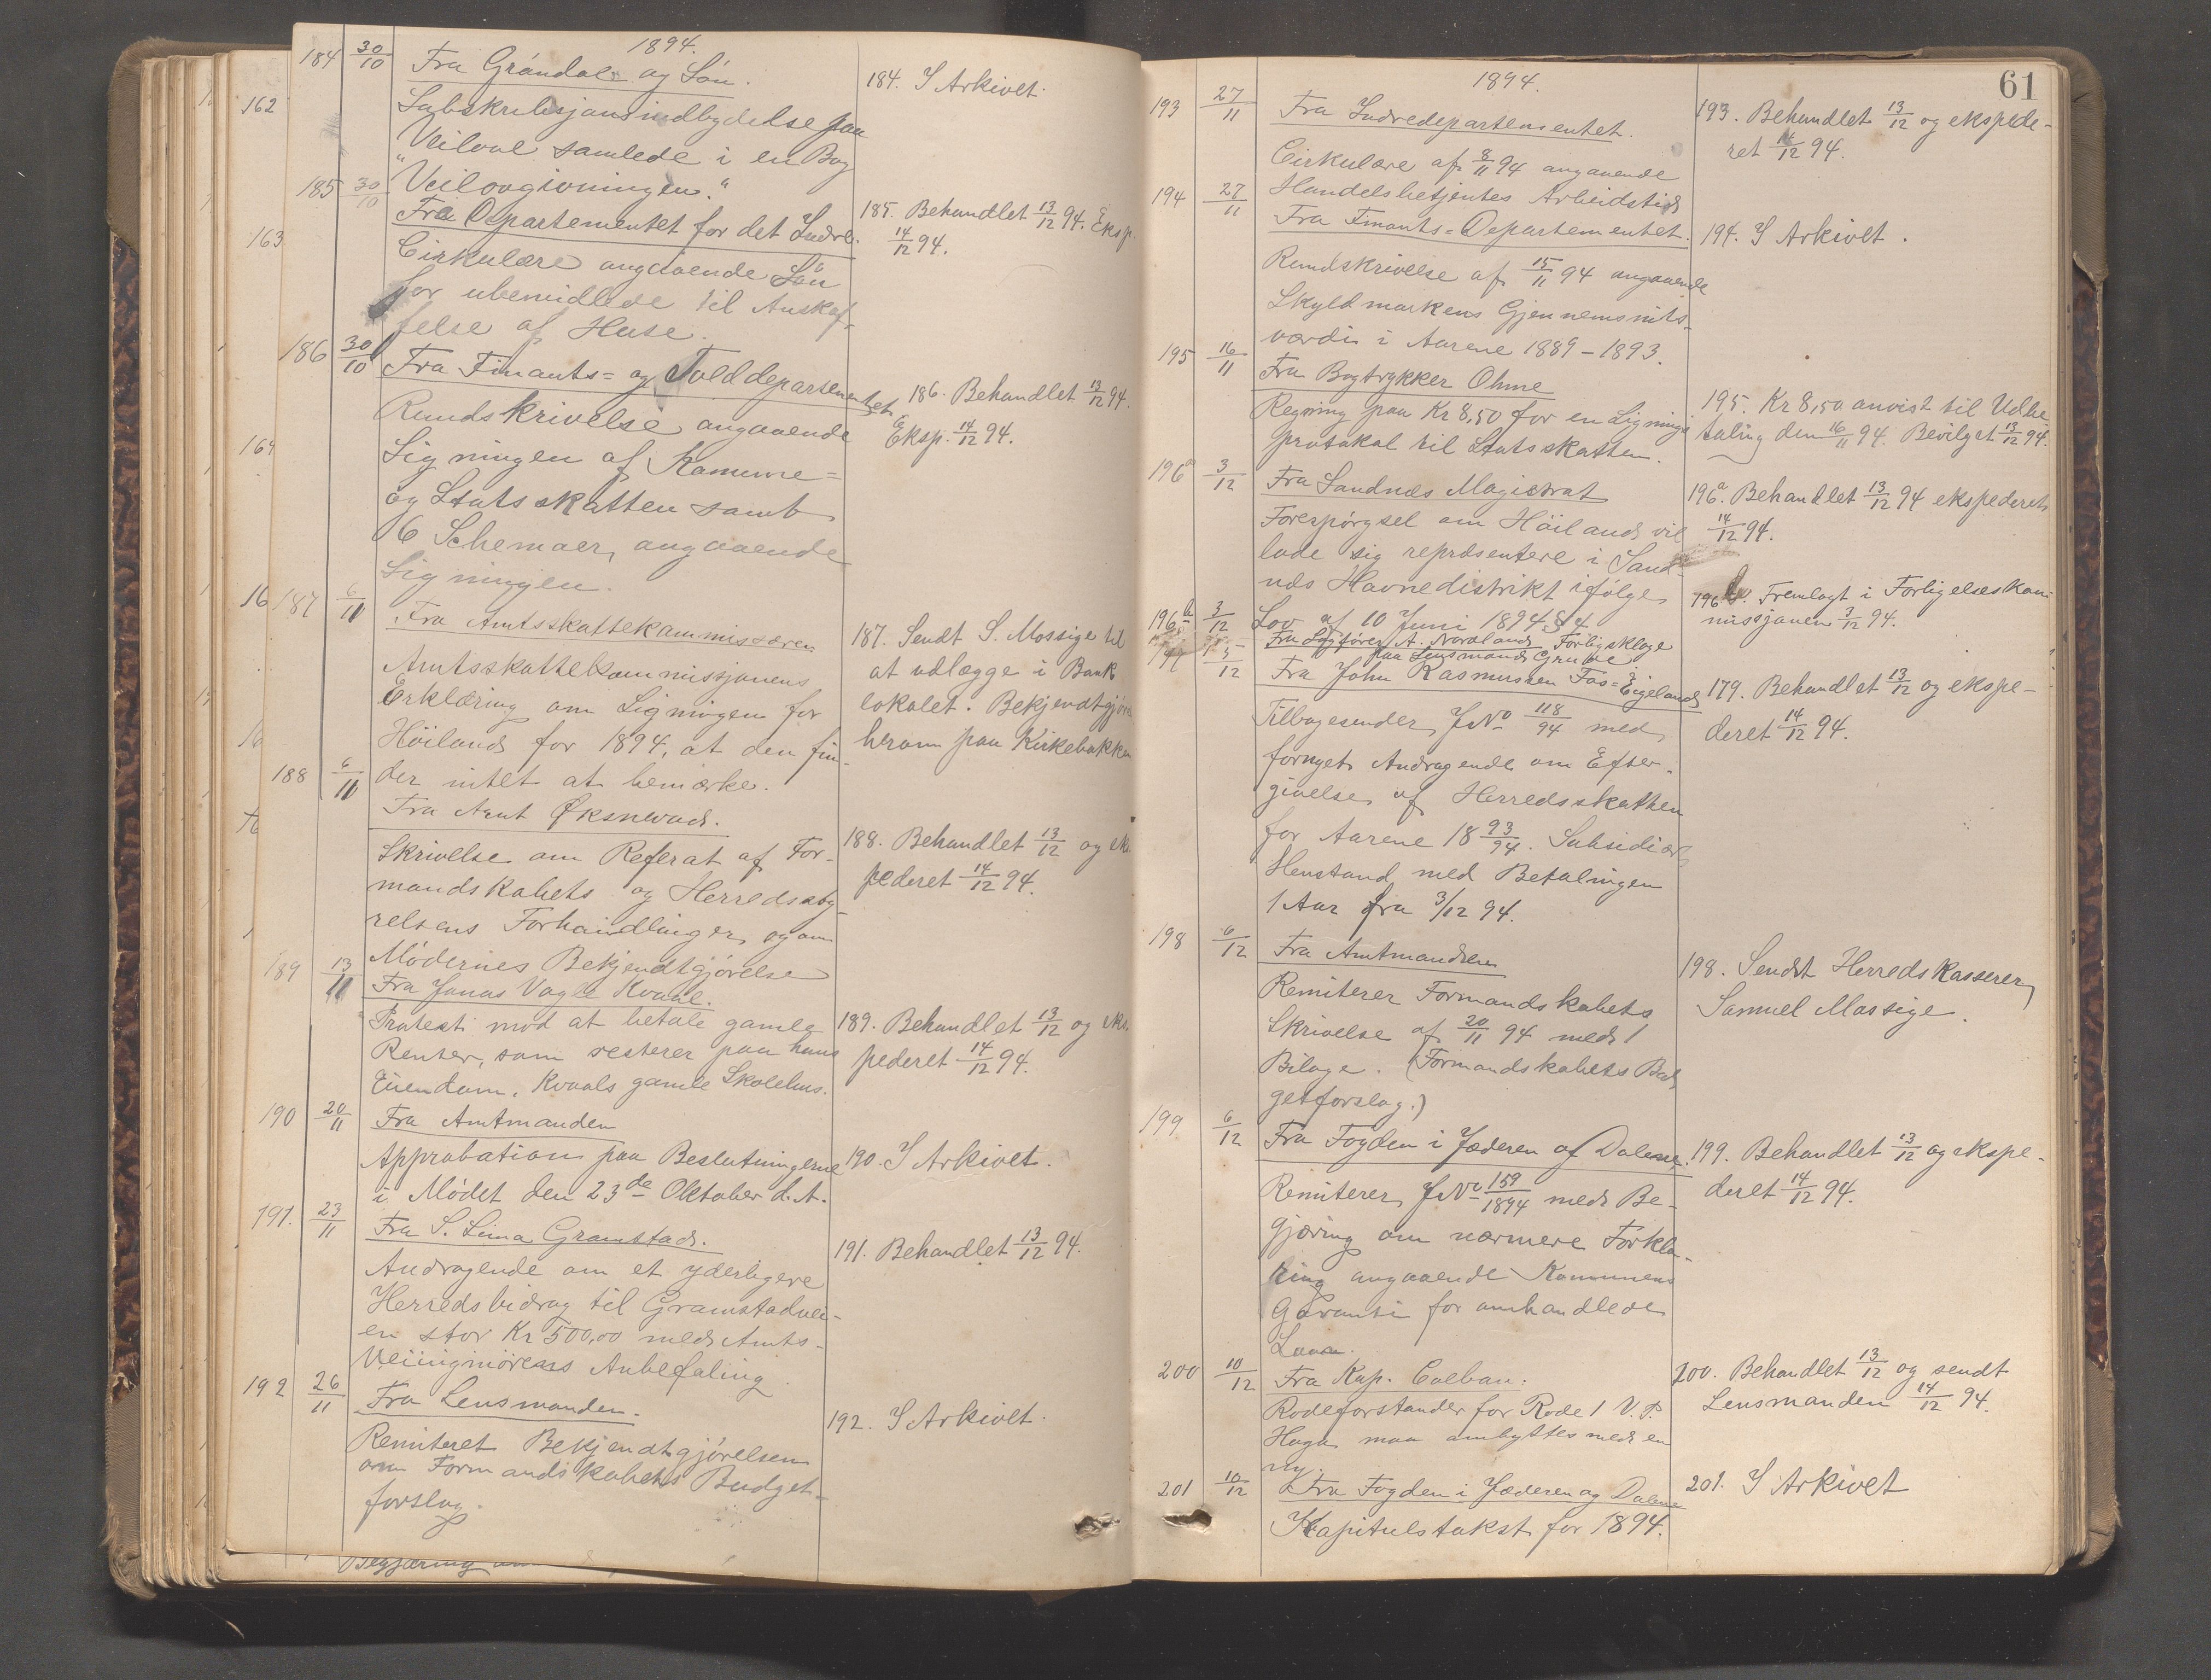 1894.
184 30/10 Fra Gröndal og Sön.
Subskribsjonsindbydelse paa
Veilove samlede i en Bog
"Veilovgivningen."
184. I Arkivet.
185 30/10 Fra Departementet for det Indre.
Cirkulære angaaende Lån
for ubemidlede til Anskaf-
felse af Huse.
185. Behandlet 13/12 94. Eksp.
14/12 94.
186 30/10 Fra Finants= og Tolddepartementet
Rundskrivelse angaaende
Ligningen af Komune=
og Statsskatten samt
6 Schemaer, angaaende
Ligningen.
186. Behandlet 13/12 94.
Eksp. 14/12 94.
187 6/11 Fra Amtsskattekommissæren
Amtsskattekommissjonens
Erklæring om Ligningen for
Höiland for 1894, at den fin-
der intet at bemærke.
187. Sendt S. Mossige til
at udlægge i Bank
lokalet. Bekjendtgjöre
herom paa Kirkebakken
188 6/11 Fra Amt Øksnevad.
Skrivelse om Referat af For-
mandskabets og Herredssty-
relsens Forhandlinger, og om
Mödernes Bekjendtgjörelse
188. Behandlet 13/12 og eks.
pederet 14/12 94.
189 13/11 Fra Jonas Vagle Kvaal.
Protest mod at betale gamle
Renter, som resterer paa hans
Eiendom, Kvaals gamle Skolehus.
189. Behandlet 13/12 og eks.
pederet 14/12 94.
190 20/11 Fra Amtmanden
Approbation paa Beslutningerne
i Mödet den 23de Oktober d. A.
190. I Arkivet.
191. 23/11 Fra S. Lima Gramstad.
Andragende om et yderligere
Herredsbidrag til Gramstadvei-
en stor Kr 500,00 med Amts-
Veiingniörens Anbefaling.
191. Behandlet 13/12 94.
192 26/11 Fra Lensmanden.
Remiteret Bekjendtgjörelsen
om Formandskabets Budget-
forslag.
192. I Arkivet.
162
163
164
16
Begjæring
61
1894.
193 27/11 Fra Indredepartementet.
Cirkulære af 8/11 94 angaaende
Handelsbetjentes Arbeidstid
193. Behandlet 13/12 og ekspede-
ret 14/12 94.
194 27/11 Fra Finants=Departementet.
Rundskrivelse af 15/11 94 angaaende
Skyldmarkens Gjennemsnits-
værdi i Aarene 1889-1893.
194. I Arkivet.
195 16/11 Fra Bogtrykker Ohme
Regning paa Kr 8,50 for en Lignings
protokol til Statsskatten.
195. Kr 8,50 anvist til Udbe
taling den 16/11 94. Bevilget 13/12 94.
196a 3/12 Fra Sandnæs Magistrat
Forespörgsel om Höiland vil
lade sig repræsentere i Sand-
næs Havnedistrikt ifölge
Lov af 10 Juni 1894 § 4
196a. Behandlet 13/12 94 ekspederet
14/12 94.
196b 3/12 Fra Sagförer A. Nordland Forligsklage
paa Lensmand Grude
196b. Fremlagt i Forligelseskom
missjonen 3/12 94.
5/12 Fra John Rasmussen Fos=Eigeland
Tilbagesender J No 118/94 med
fornyet Andragende om Efter-
givelse af Herredsskatten
for Aarene 18 93/94. Subsidiær
Henstand med Betalingen
1 Aar fra 3/12 94.
179. Behandlet 13/12 og ekspe-
deret 14/12 94.
198 6/12 Fra Amtmanden
Remiterer Formandskabets
Skrivelse af 20/11 94 med 1
Bilage. (Formandskabets Bud
getforslag.)
198. Sendt Herredskasserer
Samuel Mossige.
199 6/12 Fra Fogden i Jæderen og Dalene.
Remiterer J No 159/1894 med Be-
gjæring om nærmere Forkla-
ring angaaende Kommunens
Garanti for omhandlede
Laan.
199. Behandlet 13/12 og ekspe-
deret 14/12 94.
200 10/12 Fra Kap. Colban.
Rodeforstander for Rode 1 V. P.
Haga maa ombyttes med en
ny.
200. Behandlet 13/12 og sendt
Lensmanden 14/12 94.
201 10/12 Fra Fogden i Jæderen og Dalene
Kapitulstakst for 1894.
201. I Arkivet